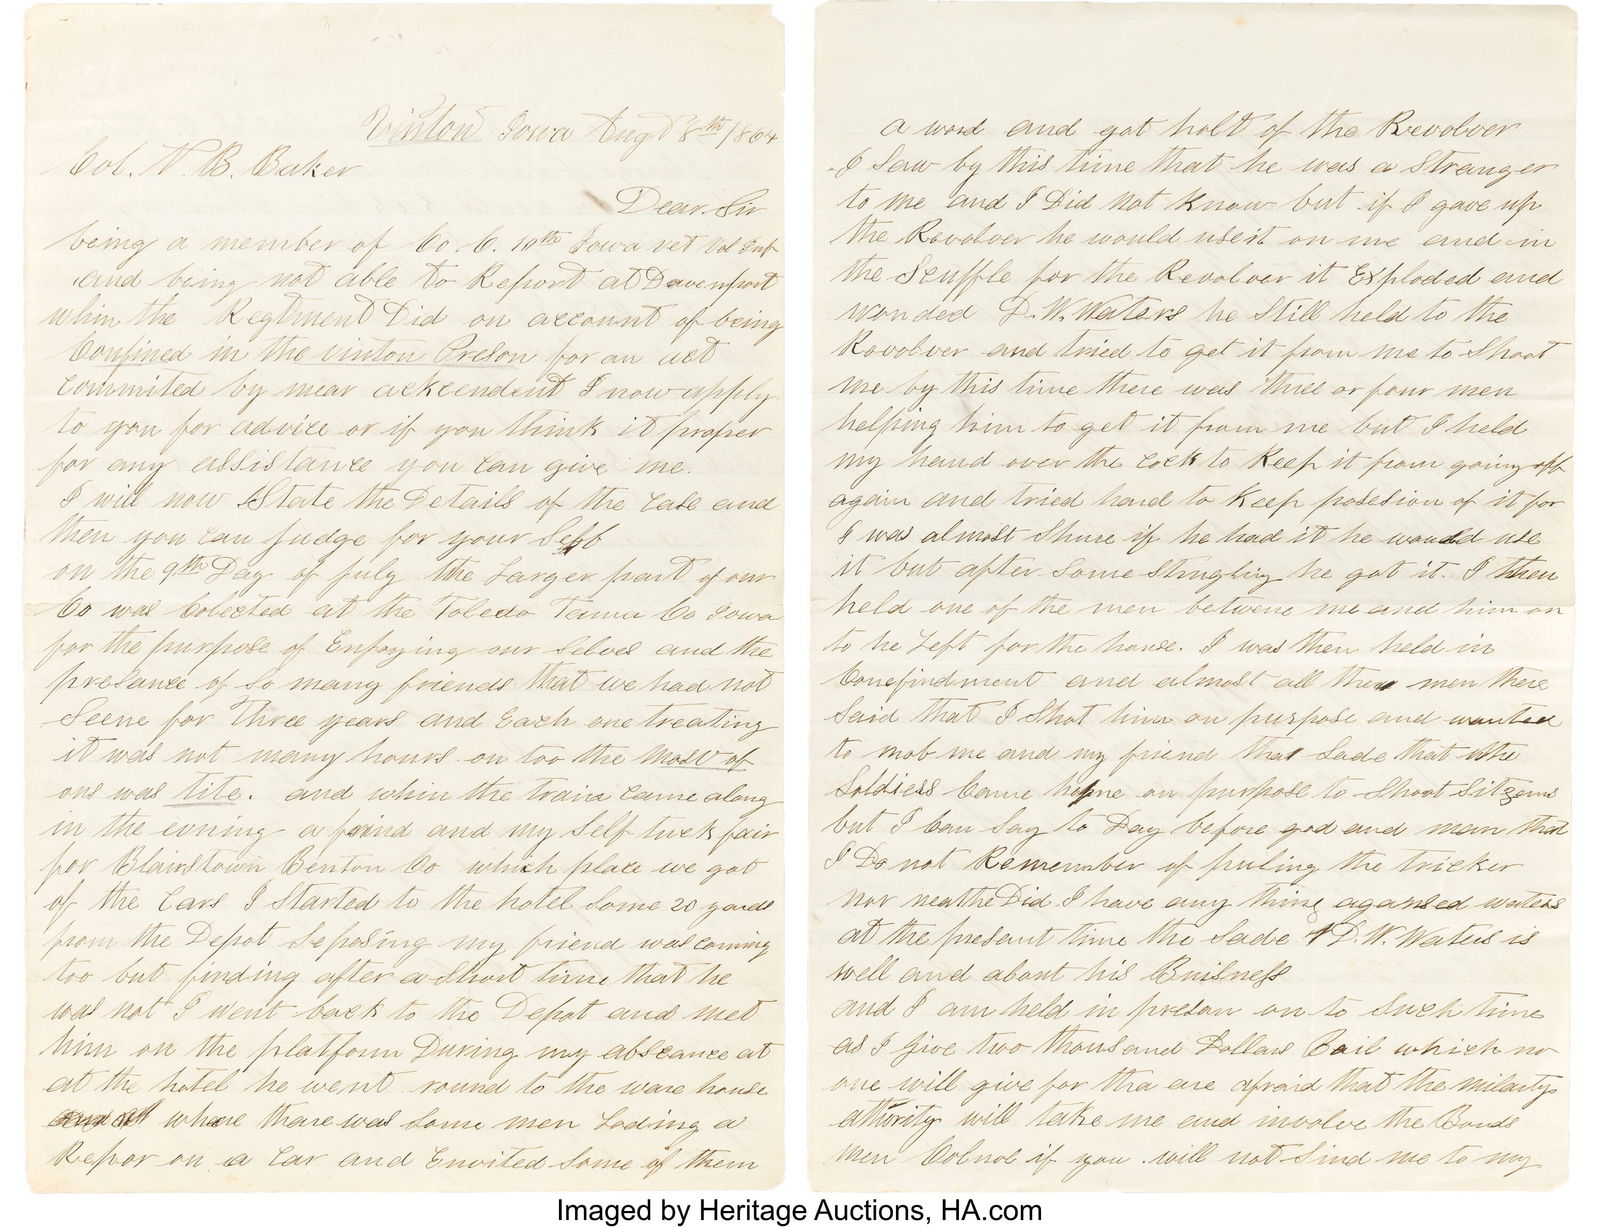 Vinton Iowa Augt 8th /864
Col. N. B. Baker
Dear. Sir
being a member of Co. C. 10th Iowa vet Vol Inf
and being not able to Report at Davenport
whin the Regtment Did on account of being
Confined in the vinton Preson for an act
committed by mear ackcendent I now apply
to you for advice or if you think it proper
for any assistance you can give me.
I will now State the Details of the case and
then you can judge for your Self
on the 9th Day of july the Larger part of our
Co was Colected at the Toledo Tama Co Iowa
for the purpose of Enjoying our selves and the
presance of so many friends that we had not
Seene for Three years and Each one treating
it was not many hours on too the most of
ous was tite. and whin the train came along
in the evning a friend and my Self tuck fair
for Blairstown Benton Co which place we got
of the Cars I Started to the hotel Some 20 yards
from the Depot Seposing my friend was coming
too but finding after a Short time that he
was not I went back to the Depot and met
him on the platform During my abscance at
at the hotel he went round to the ware house
whare thare was Some men Loding a
Repor on a Car and Envited Some of them
a word and got holt of the Revolver
I Saw by this time that he was a Stranger
to me and I Did not Know but if I gave up
the Revolver he would use it on me and in
the Scuffle for the Revolver it Exploded and
wonded D. W. Waters he Still held to the
Revolver and tried to get it from me to Shoot
me by this time there was three or four men
helping him to get it from me but I held
my hand over the cock to Keep it from going off
again and tried hard to Keep posesion of it for
I was almost Shure if he had it he would use
it but after Some Strugling he got it. I then
held one of the men betwene me and him on
to he Left for the house. I was then held in
Conefindment and almost all the men there
Said that I Shot him on purpose and wanted
to mob me and my friend that Sade that the
Soldiers Came home on purpose to Shoot Sitzens
but I Can Say to Day before god and man that
I Do not Remember of puling the tricker
nor neathe Did I have any thing agansed waters
at the present time the Sade D. W. Waters is
well and about his Buisness
and I am held in preson on to Such time
as I give two thousand Dollars Bail which no
one will give for tha are afraid that the milartys
athority will take me and involve the Bonds
men Colnol if you will not Sind me to my
Imaged by Heritage Auctions, HA.com